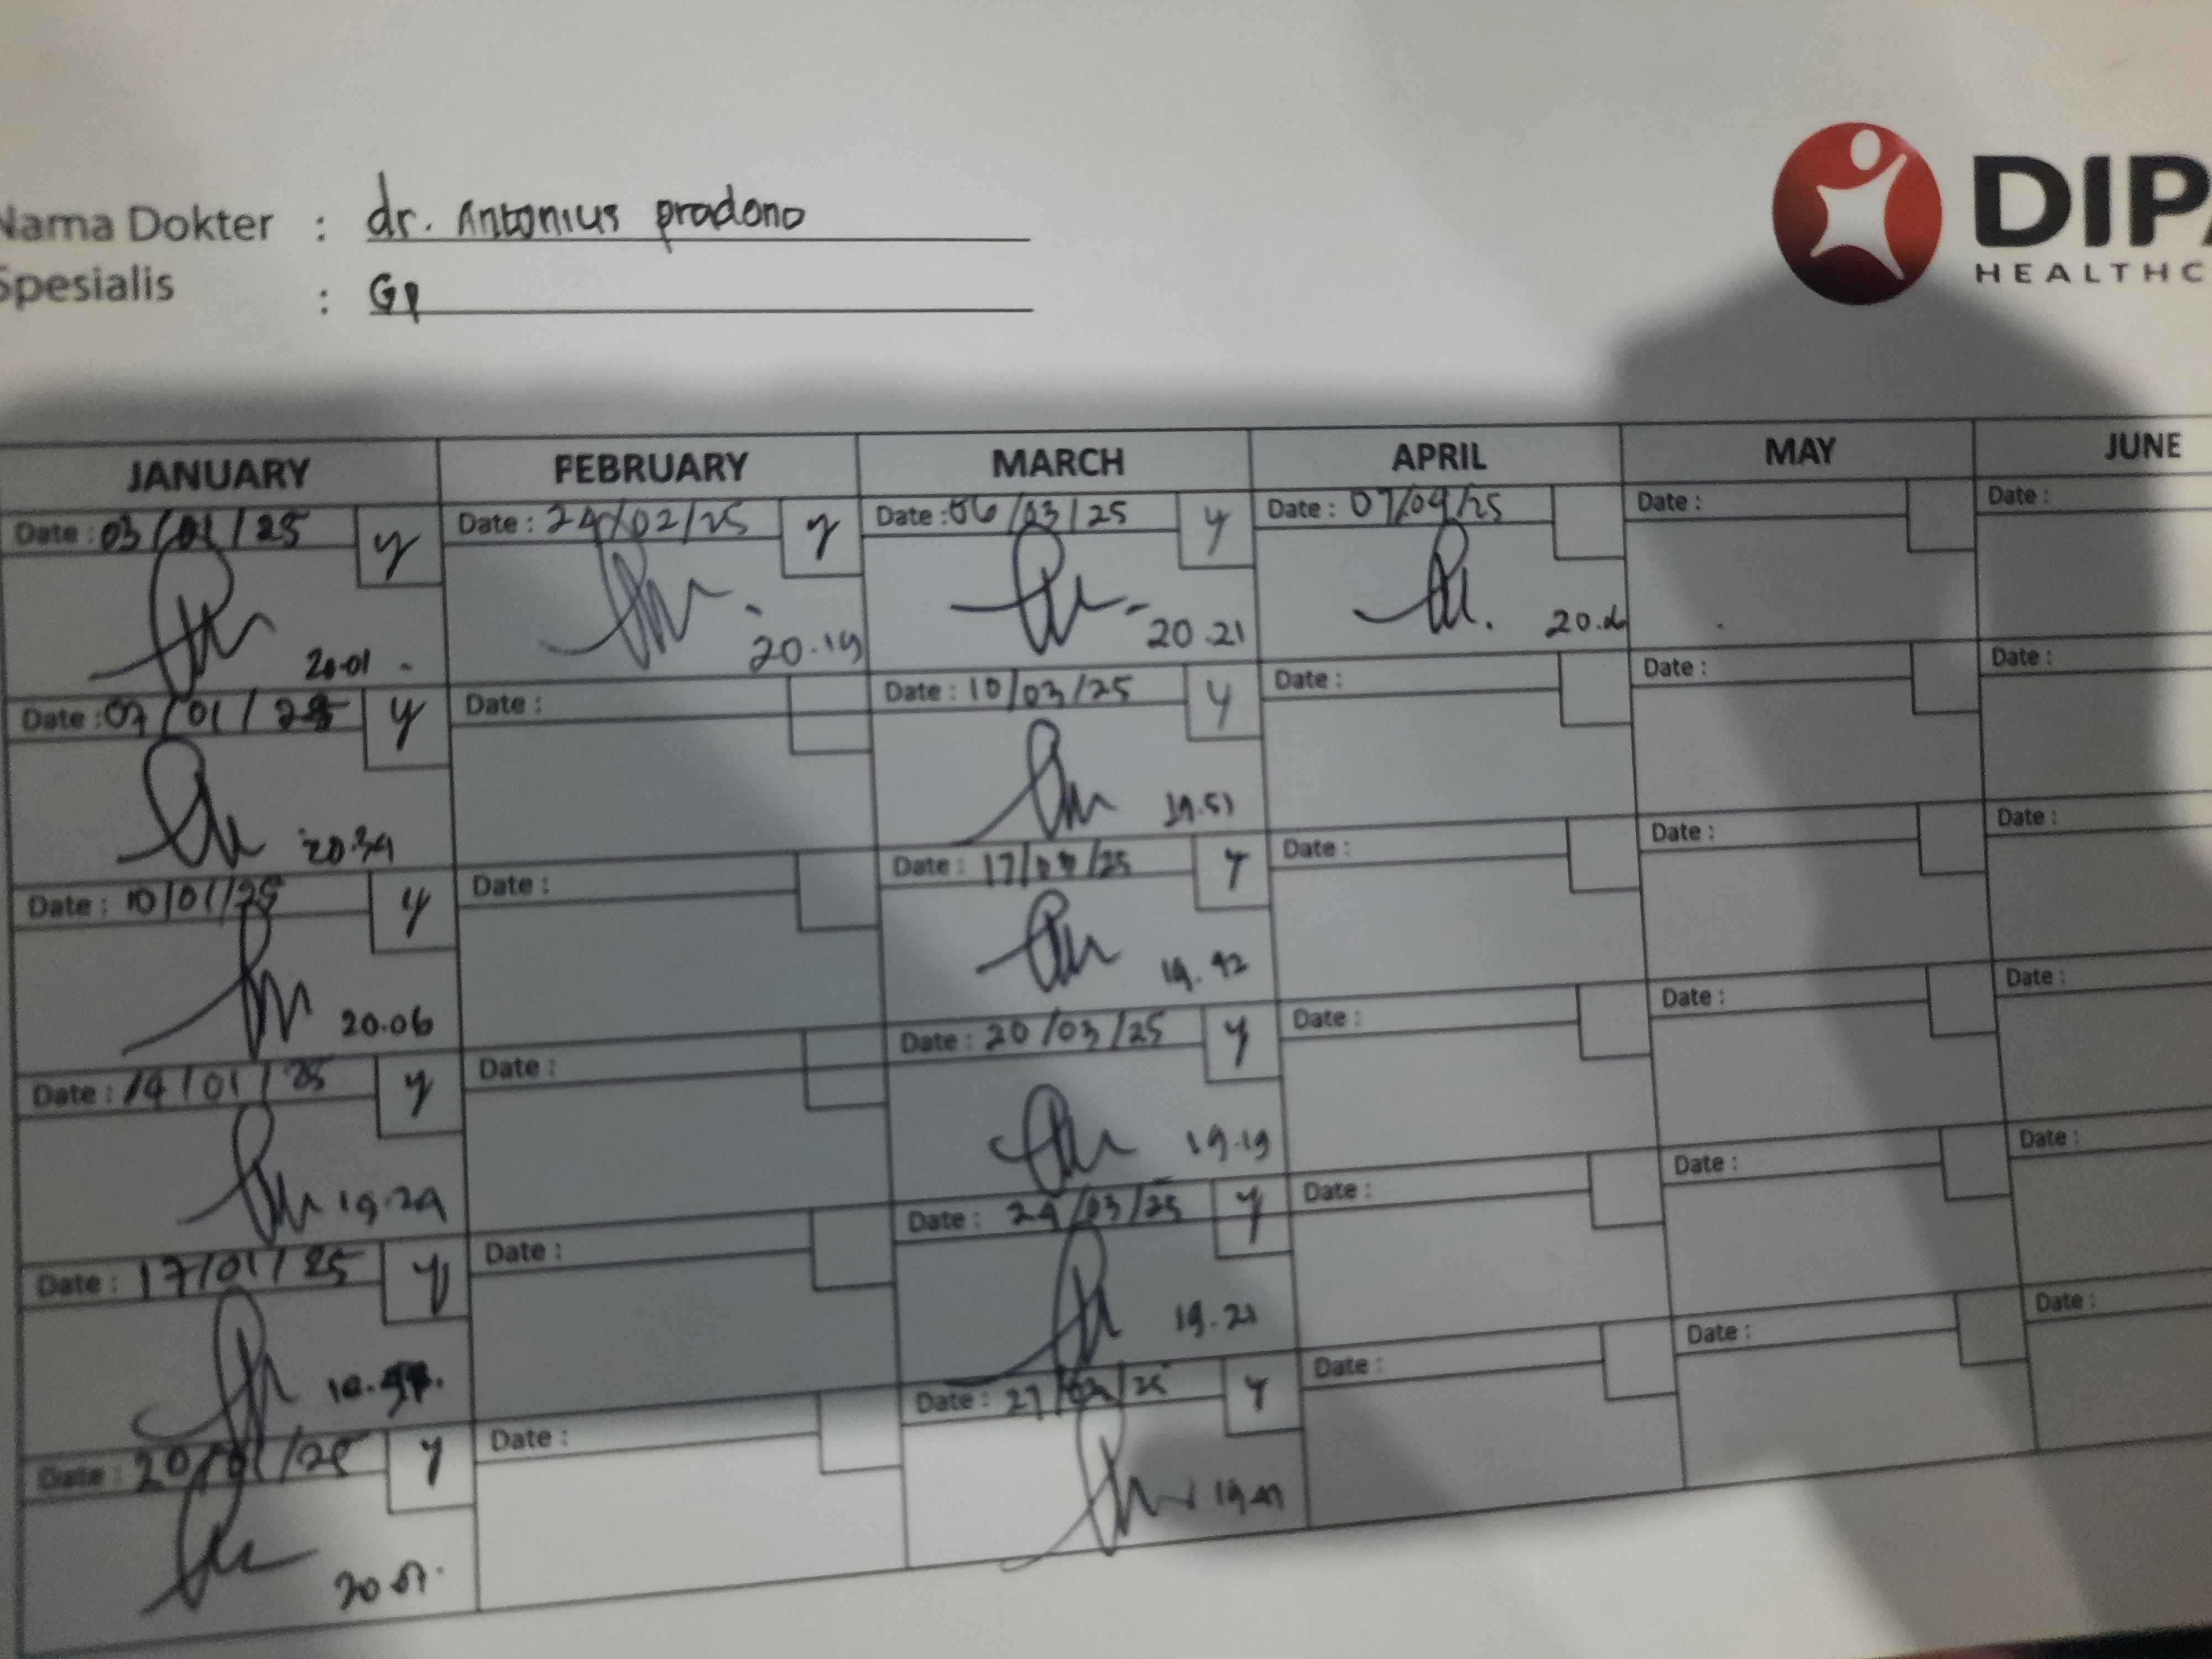 Nama Dokter : dr. Antonius pradono
Spesialis : GP
DIPA
HEALTHC
JANUARY FEBRUARY MARCH APRIL MAY JUNE
Date : 03/01/25 y Date : 24/02/25 y Date : 06/03/25 y Date : 07/04/25 Date : Date :
20.01 20.19 20.21
Date : 07/01/25 y Date : Date : 10/03/25 y Date : Date : Date :
20.34 19.51
Date : 10/01/25 y Date : Date : 17/03/25 y Date : Date : Date :
20.06 19.42
Date : 14/01/25 y Date : Date : 20/03/25 y Date : Date : Date :
19.24 19.19
Date : 17/01/25 y Date : Date : 24/03/25 y Date : Date : Date :
19.21
Date : 20/01/25 y Date : Date : 27/03/25 y Date : Date : Date :